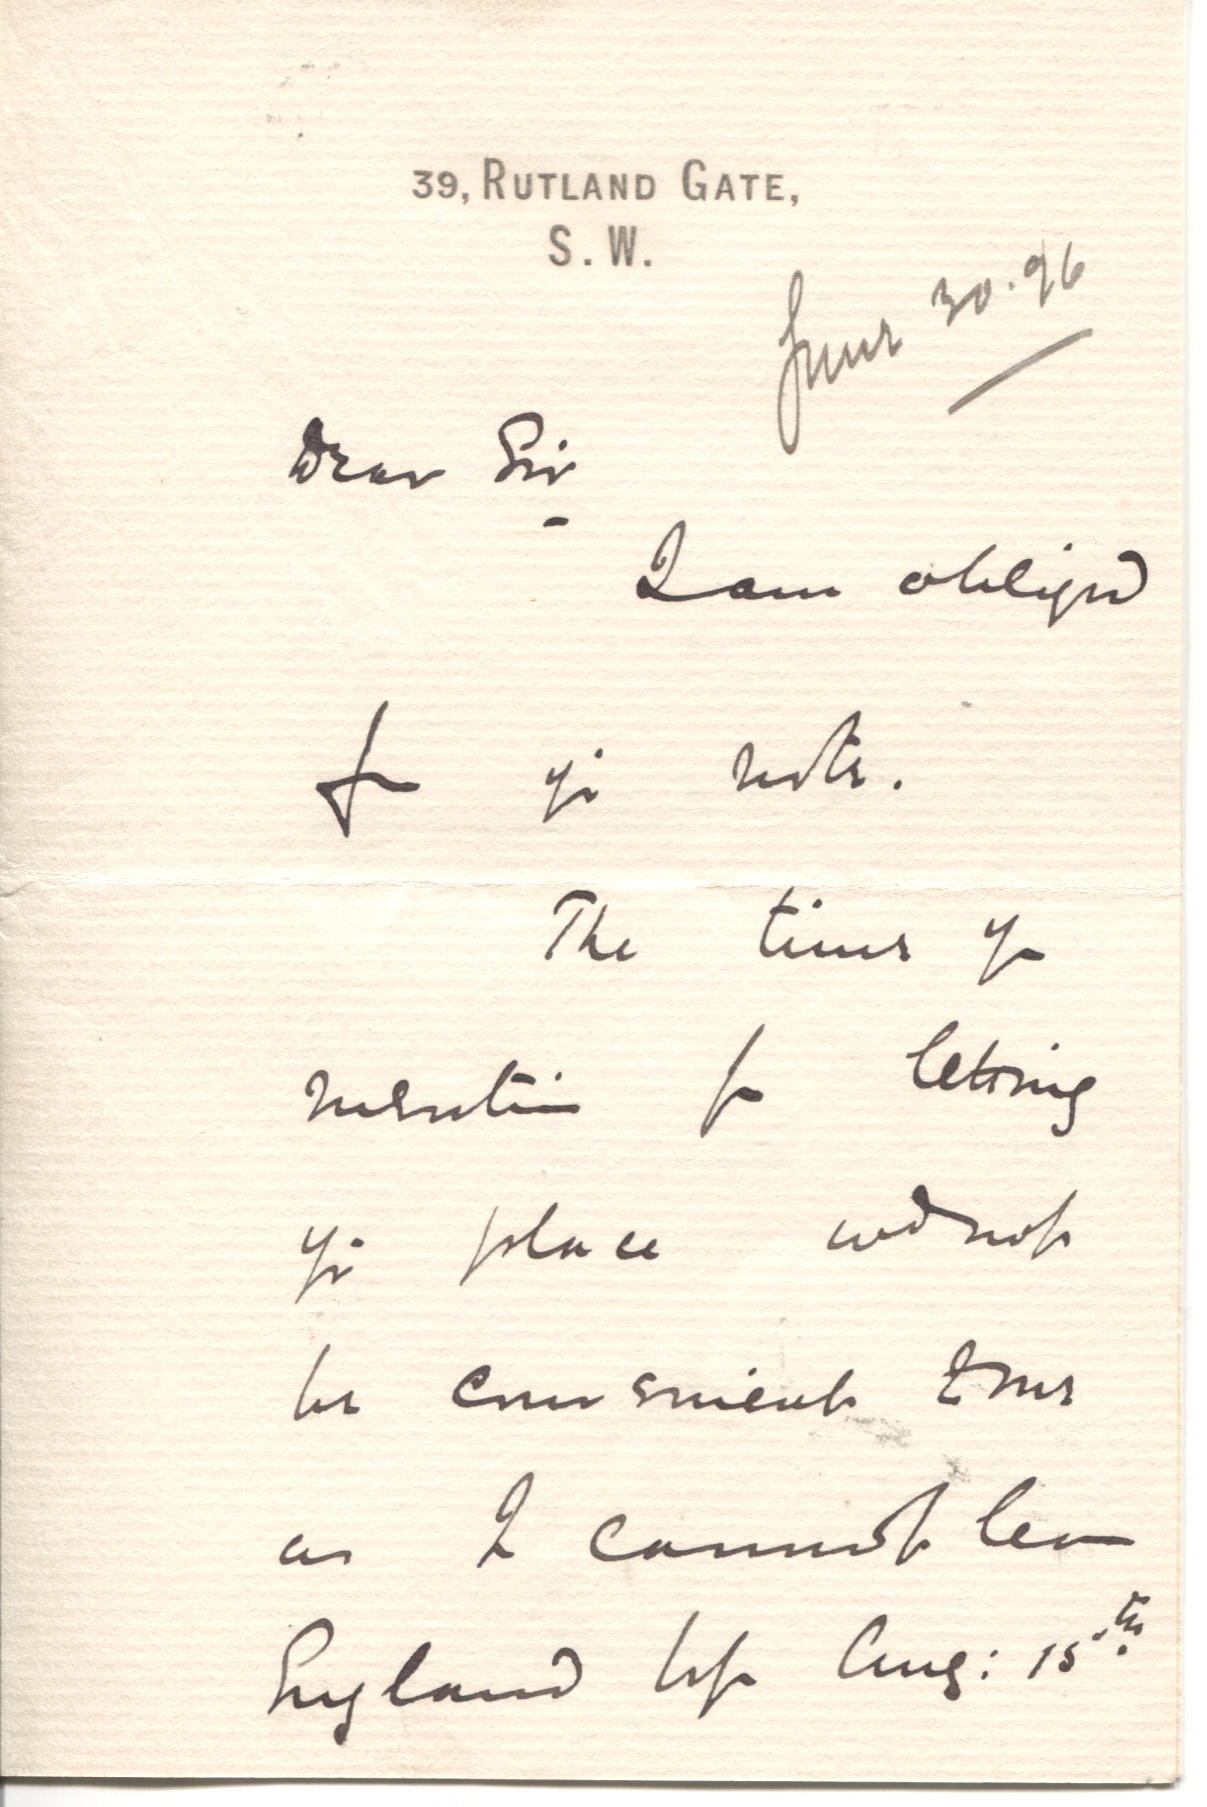 39, RUTLAND GATE,
S. W.
June 30. 96
Dear Sir
I am obliged
for yr note.
The time yo
mention for letting
yr place wd not
be convenient to me
as I cannot leave
England bfr Aug: 15th